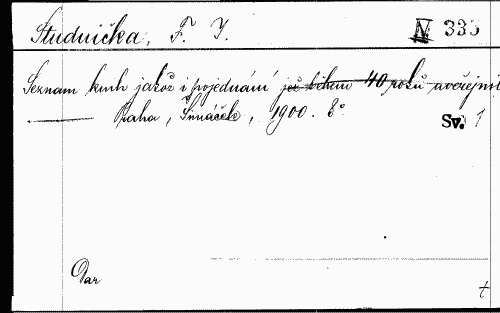 Studnička, F. J. N 335
Seznam knih jakož i pojednání jež během 40 roků uveřejnil
Praha, Šimáček, 1900. 8°
Sv. 1
Dar
t